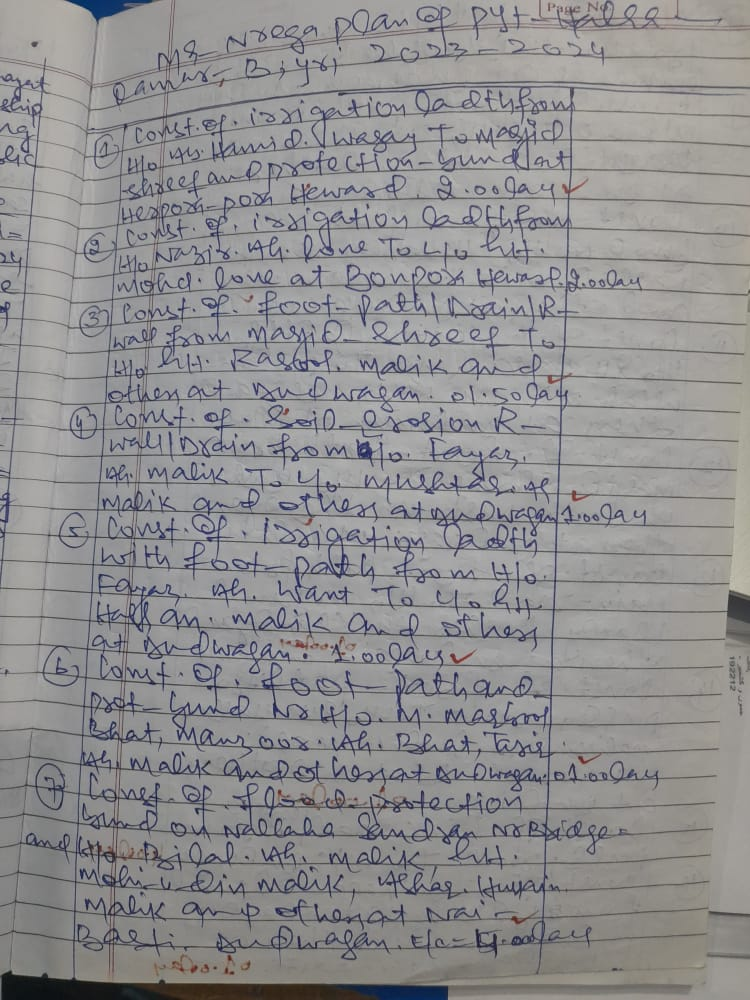 Page No
MG Nrega plan Of pyt-
Damur-B, yr; 2023-2024
① Const. of. irrigation ladth from
H/o Ah. Hamid. Wagay To masjid
shreef and protection-bund at
Herpora-pora Heward. 2.00 lay
② Const. of. irrigation ladth from
H/o Nazir. Ah. lone To H/o Gh.
mohd. lone at Bonpora Heward. 2.00 lay
③ Const. of. foot-path/Drain/R-
wall from masjid-shreef To
H/o Gh. Rasool. malik and
others at Dudwagan. 01.50 lay
④ Const. of. Soil-erosion R-
wall/Drain from H/o. Fayaz.
Ah. malik To H/o mushtaq. Ah
malik and others at Dudwagan 1.00 lay
⑤ Const. Of. Irrigation ladth
with foot-path from H/o.
Fayaz. Ah. Want To H/o Gh.
Hassan. malik and others
at Dudwagan. 1.00 lay
⑥ Const. Of. foot-path and-
prot-bund Nr H/o. M. maqbool
Bhat, Manzoor. Ah. Bhat, Tariq.
Ah. malik and others at Dudwagan. 01.00 lay
⑦ Const. Of. flood-protection
bund on Nallaha Sandran Nr Bridge=
and H/o Bilal. Ah. malik, Gh.
mohi-u-Din malik, Ashaq. Hussain.
malik and others at Nai-
Basti. Dudwagan. E/c= 4.00 lay
192212